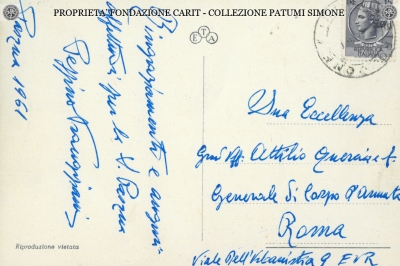 PROPRIETA' FONDAZIONE CARIT - COLLEZIONE PATUMI SIMONE
E T A
Ringraziamenti e auguri
affettuosi per la S. Pasqua
Peppino
Pasqua 1961
Sua Eccellenza
Gen. Attilio
Generale di Corpo d'Armata
Roma
Viale Dell'Urbanistica 9 EUR
Riproduzione vietata